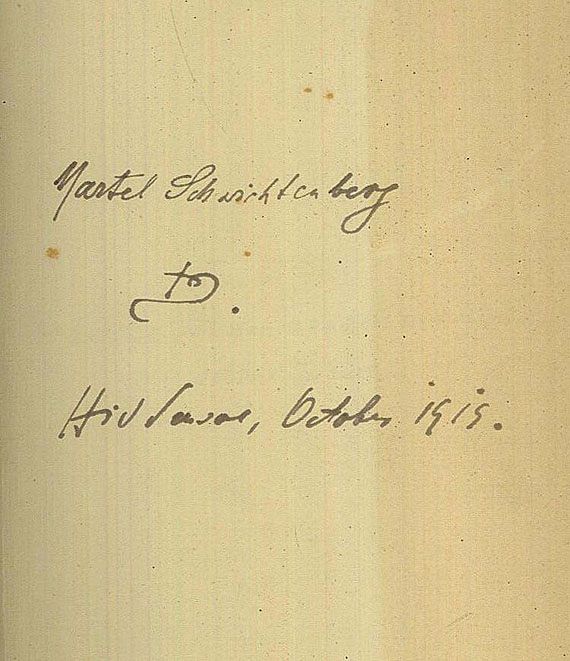 Martel Schwichtenberg
D.
Hiddensoe, October 1919.